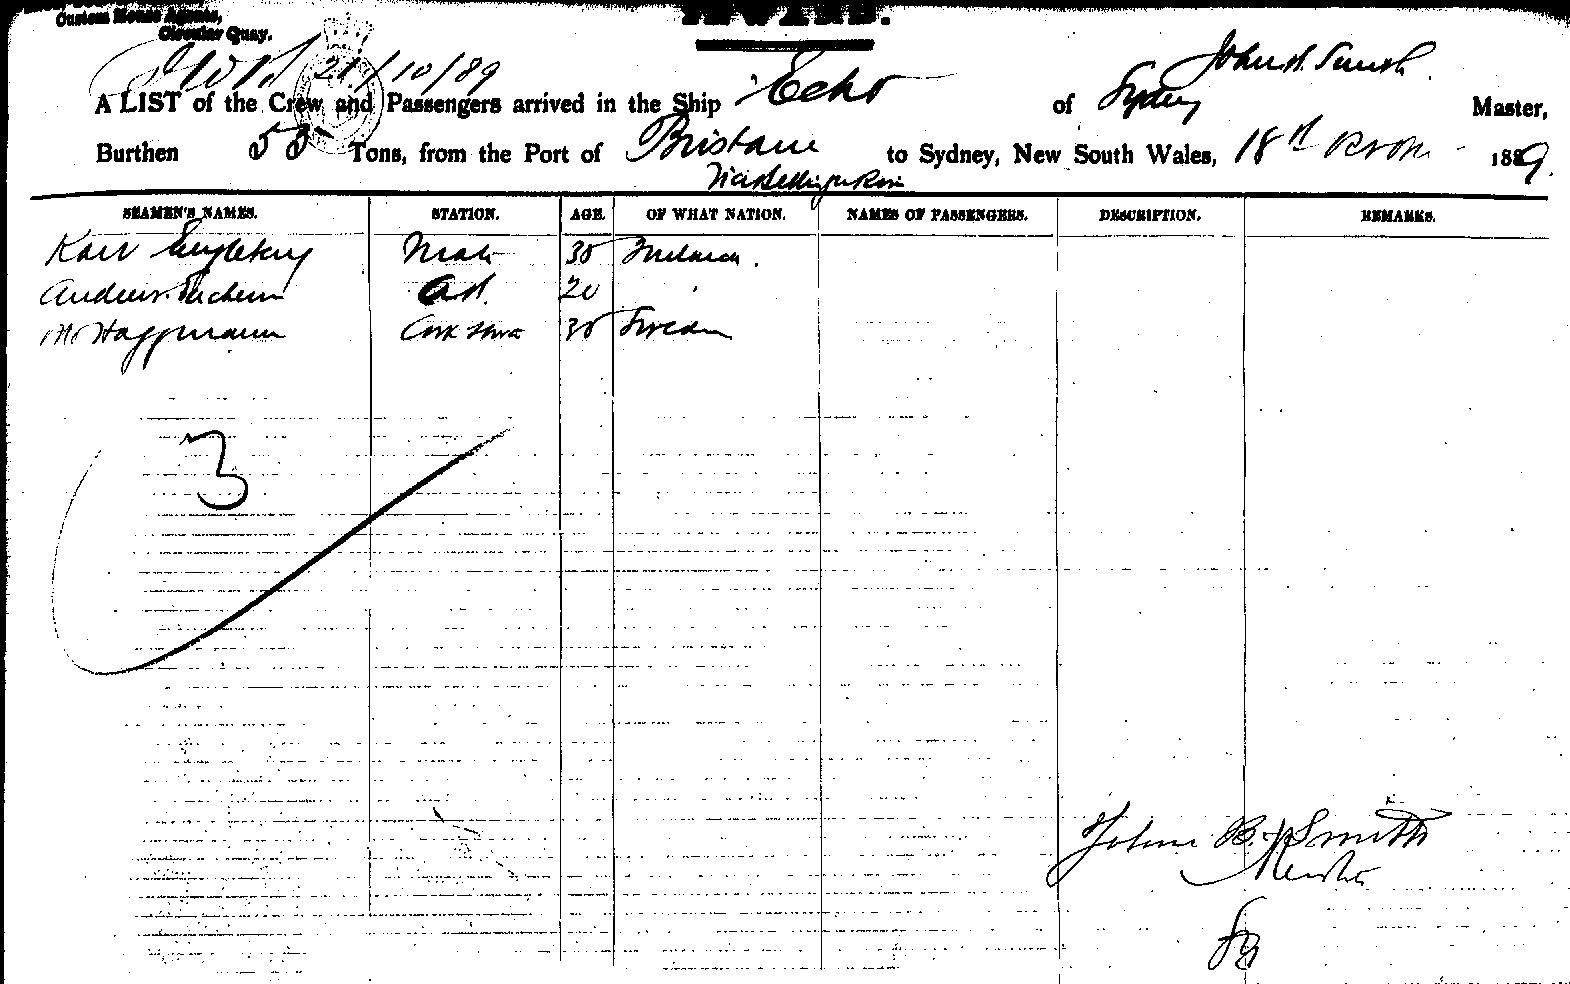 Custom House Agents,
Circular Quay.
21/10/89
John B. Smith
A LIST of the Crew and Passengers arrived in the Ship Echo of Sydney Master,
Burthen 55 Tons, from the Port of Brisbane to Sydney, New South Wales, 18th 1889.
Via Bellinger River
SEAMEN'S NAMES. STATION. AGE. OF WHAT NATION. NAMES OF PASSENGERS. DESCRIPTION. REMARKS.
Karl Mate 30
Andrew A.B. 20
Haggmann 30 Sweden
3
John B. Smith
Master